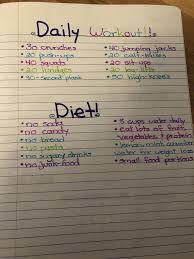 Daily Workout!!
• 30 crunches
• 20 push-ups
• 40 squats
• 20 lundges
• 30-second plank
• 40 jumping jacks
• 20 calf-raises
• 20 sit-ups
• 20 leg-lifts
• 50 high-knees
Diet!
• no soda
• no candy
• no bread
• no pasta
• no sugary drinks
• no junk-food
• 5 cups water daily
• eat lots of fruit,
vegetables & protein
• lemon, mint,
water for weight loss
• small food portions